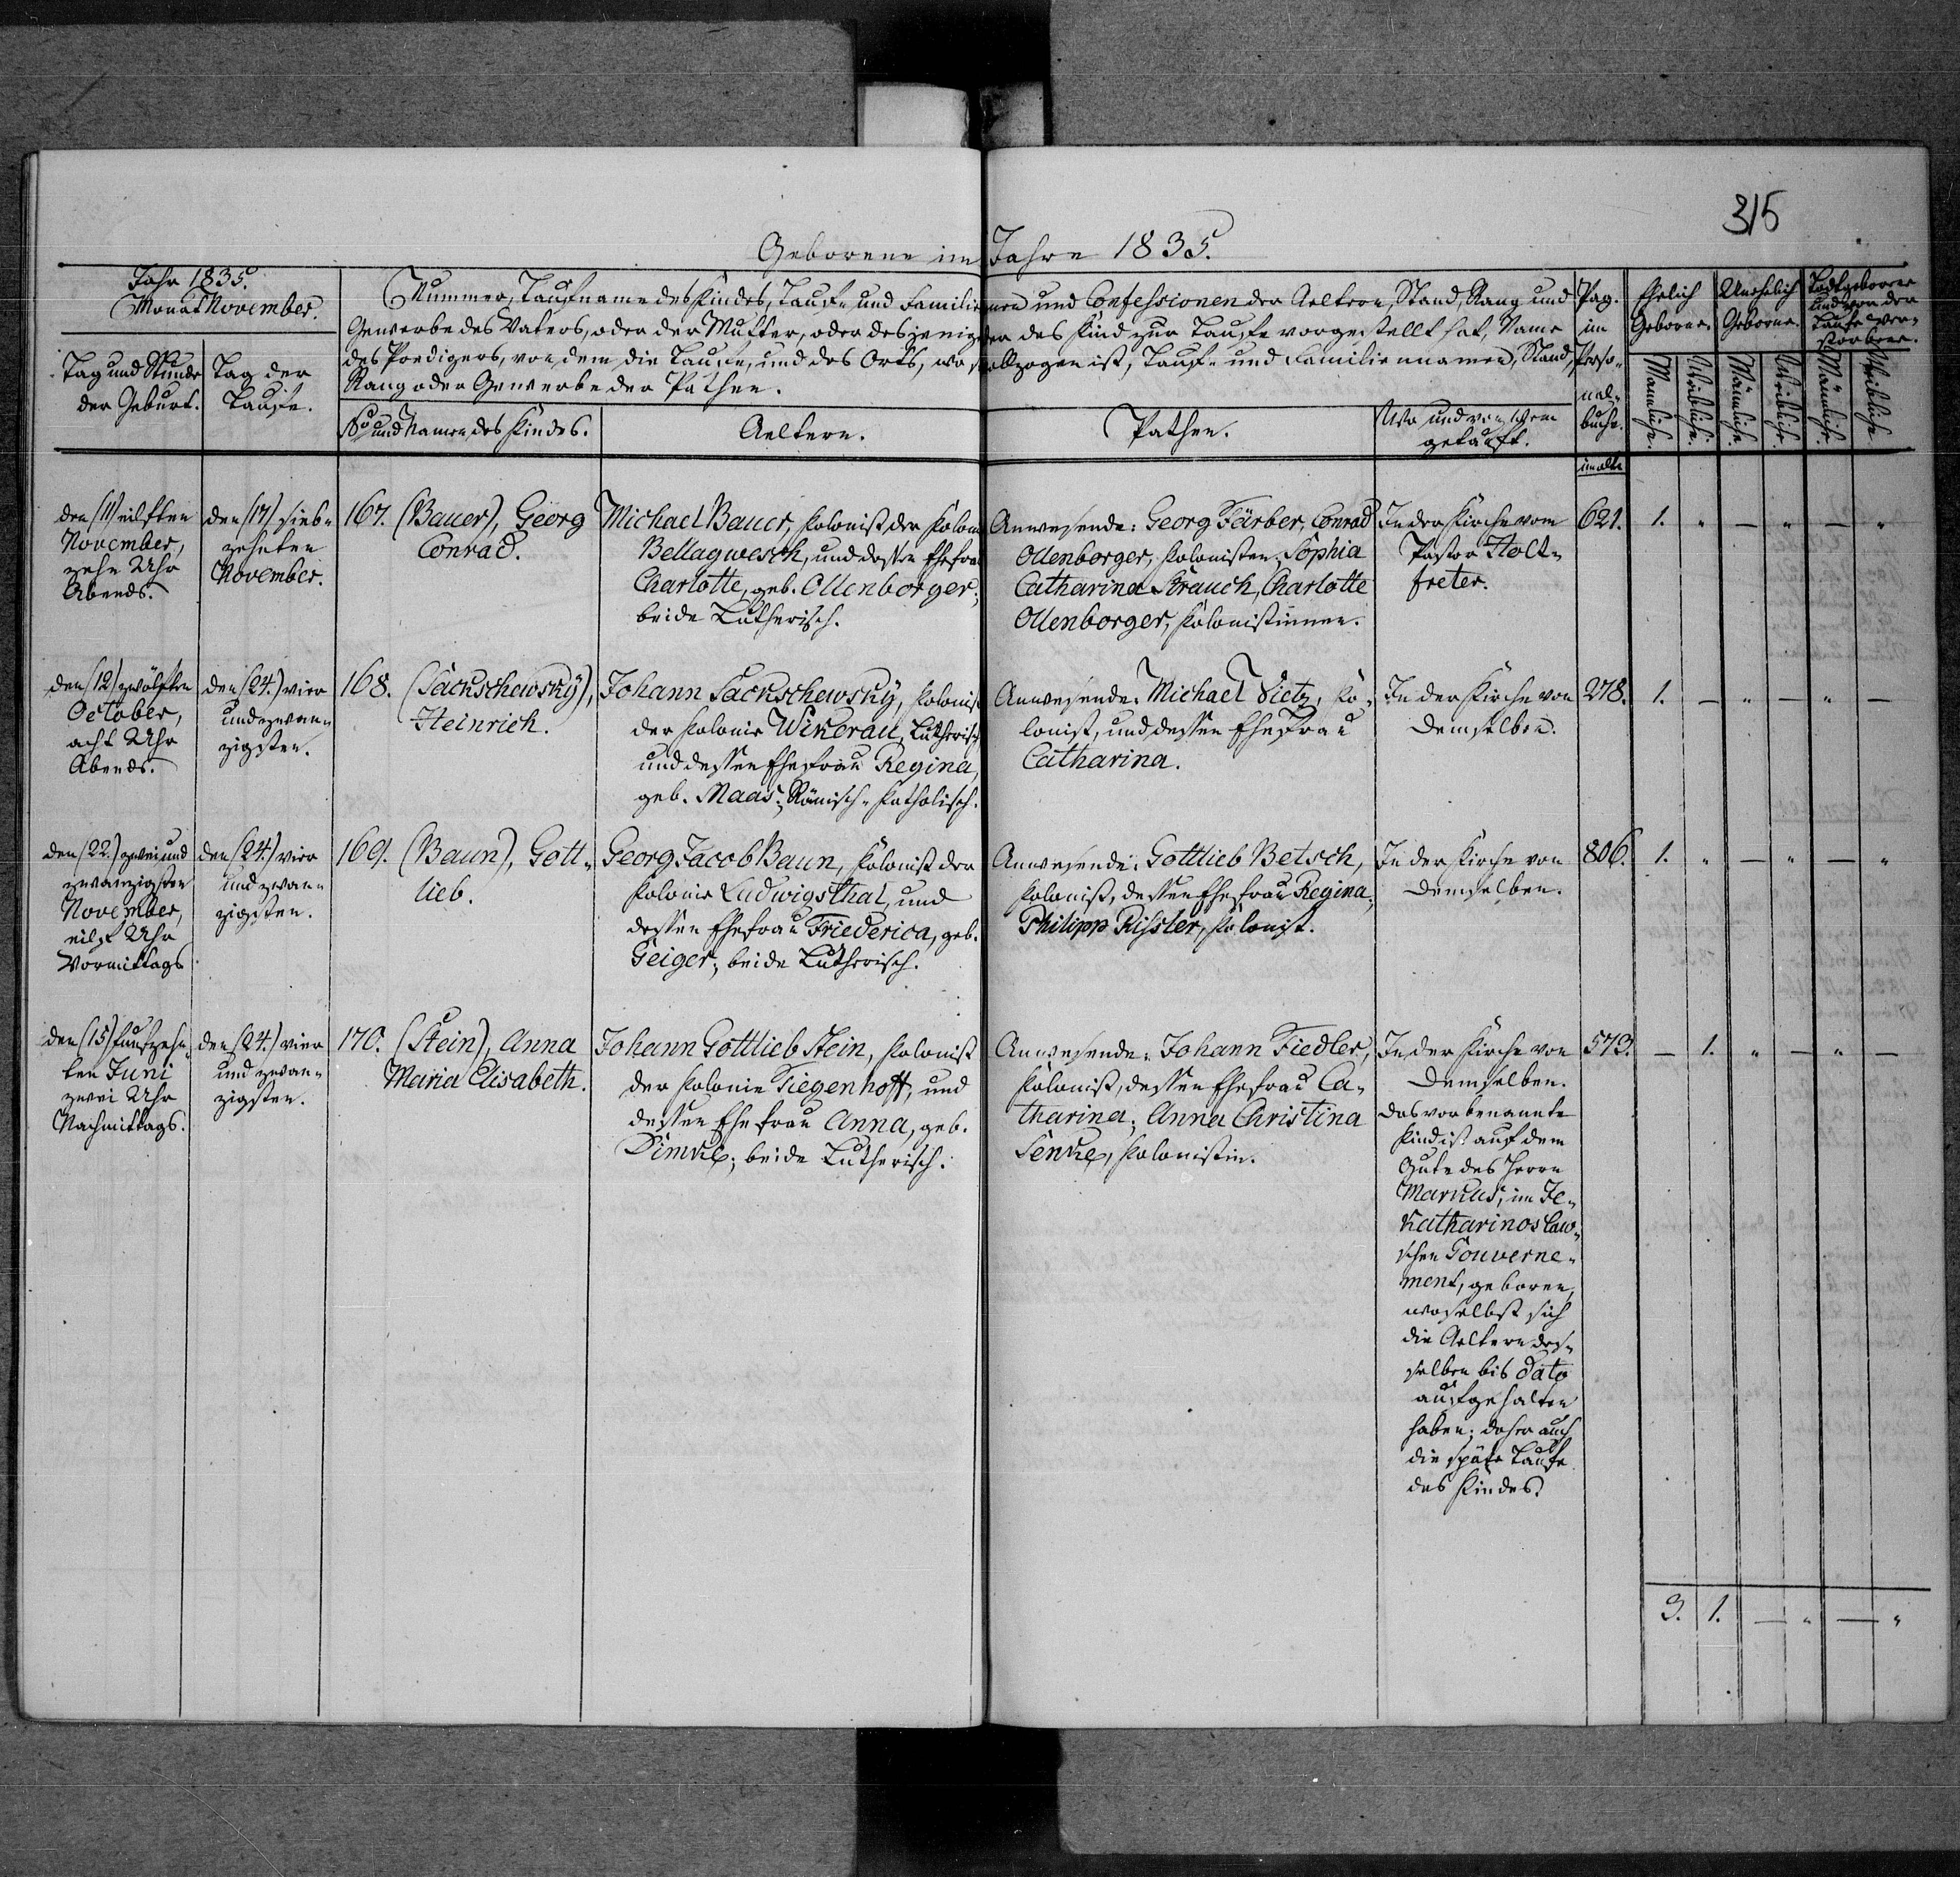 315
Geborene im Jahre 1835.
Jahr 1835.
Monat November.
Tag und Stunde
der Geburt.
Tag der
Taufe.
Nummer, Taufname des Kindes, Tauf- und Familiennamen und Confessionen der Aeltern, Stand, Rang und
Gewerbe des Vaters, oder der Mutter, oder desjenigen der das Kind zur Taufe vorgestellt hat, Name
des Predigers, von dem die Taufe, und des Orts, wo sie vollzogen ist, Tauf- und Familiennamen, Stand,
Rang oder Gewerbe der Pathen.
No und Namen des Kindes.
Aeltern.
Pathen.
Wo und von wem
getauft.
Pag.
im
Perso-
nal-
buche.
im alten
Ehelich
Geborne.
Unehelich
Geborne.
Todtgeborne
und vor der
Taufe ver-
storbene.
Männliche.
Weibliche.
Männliche.
Weibliche.
Männliche.
Weibliche
den (11) eilften
November,
zehn Uhr
Abends.
den (17) sieb-
zehnten
November.
167. (Bauer), Georg
Conrad.
Michael Bauer, Kolonist der Kolonie
Bellagwesch, und dessen Ehefrau
Charlotte, geb. Ollenborger;
beide Lutherisch.
Anwesende: Georg Färber, Conrad
Ollenborger, Kolonisten; Sophia
Catharina Strauch, Charlotte
Ollenborger, Kolonistinnen.
In der Kirche vom
Pastor Holt-
freter.
621. 1. " — " — "
den (12) zwölften
October,
acht Uhr
Abends.
den (24.) vier
und zwan-
zigsten.
168. (Sackschewsky),
Heinrich.
Johann Sackschewsky, Kolonist
der Kolonie Wikerau, Lutherisch
und dessen Ehefrau Regina,
geb. Maas; Römisch-Katholisch.
Anwesende: Michael Dietz, Ko-
lonist, und dessen Ehefrau
Catharina.
In der Kirche von
demselben.
278. 1. — " — " —
den (22.) zwei und
zwanzigsten
November,
eilf Uhr
Vormittags
den (24.) vier
und zwan-
zigsten.
169. (Baun), Gott-
lieb.
Georg Jacob Baun, Kolonist der
Kolonie Ludwigsthal, und
dessen Ehefrau Friederica, geb.
Geiger; beide Lutherisch.
Anwesende: Gottlieb Betsch,
Kolonist, dessen Ehefrau Regina;
Philipp Rissler, Kolonist.
In der Kirche von
demselben.
806. 1. " — " — "
den (15) funfzehn-
ten Juni
zwei Uhr
Nachmittags.
den (24.) vier
und zwan-
zigsten.
170. (Stein), Anna
Maria Elisabeth.
Johann Gottlieb Stein, Kolonist
der Kolonie Tiegenhoff, und
dessen Ehefrau Anna, geb.
Dimke; beide Lutherisch.
Anwesende: Johann Fiedler,
Kolonist, dessen Ehefrau Ca-
tharina; Anna Christina
Senke, Kolonistin.
In der Kirche von
demselben.
das vorbenannte
Kind ist auf dem
Gute des Herrn
Markus, im Je-
katharinoslaw-
schen Gouverne-
ment, geboren,
woselbst sich
die Aeltern des-
selben bis dato
aufgehalten
haben; daher auch
die späte Taufe
des Kindes.
573. — 1. " — " —
3. 1. — " — "